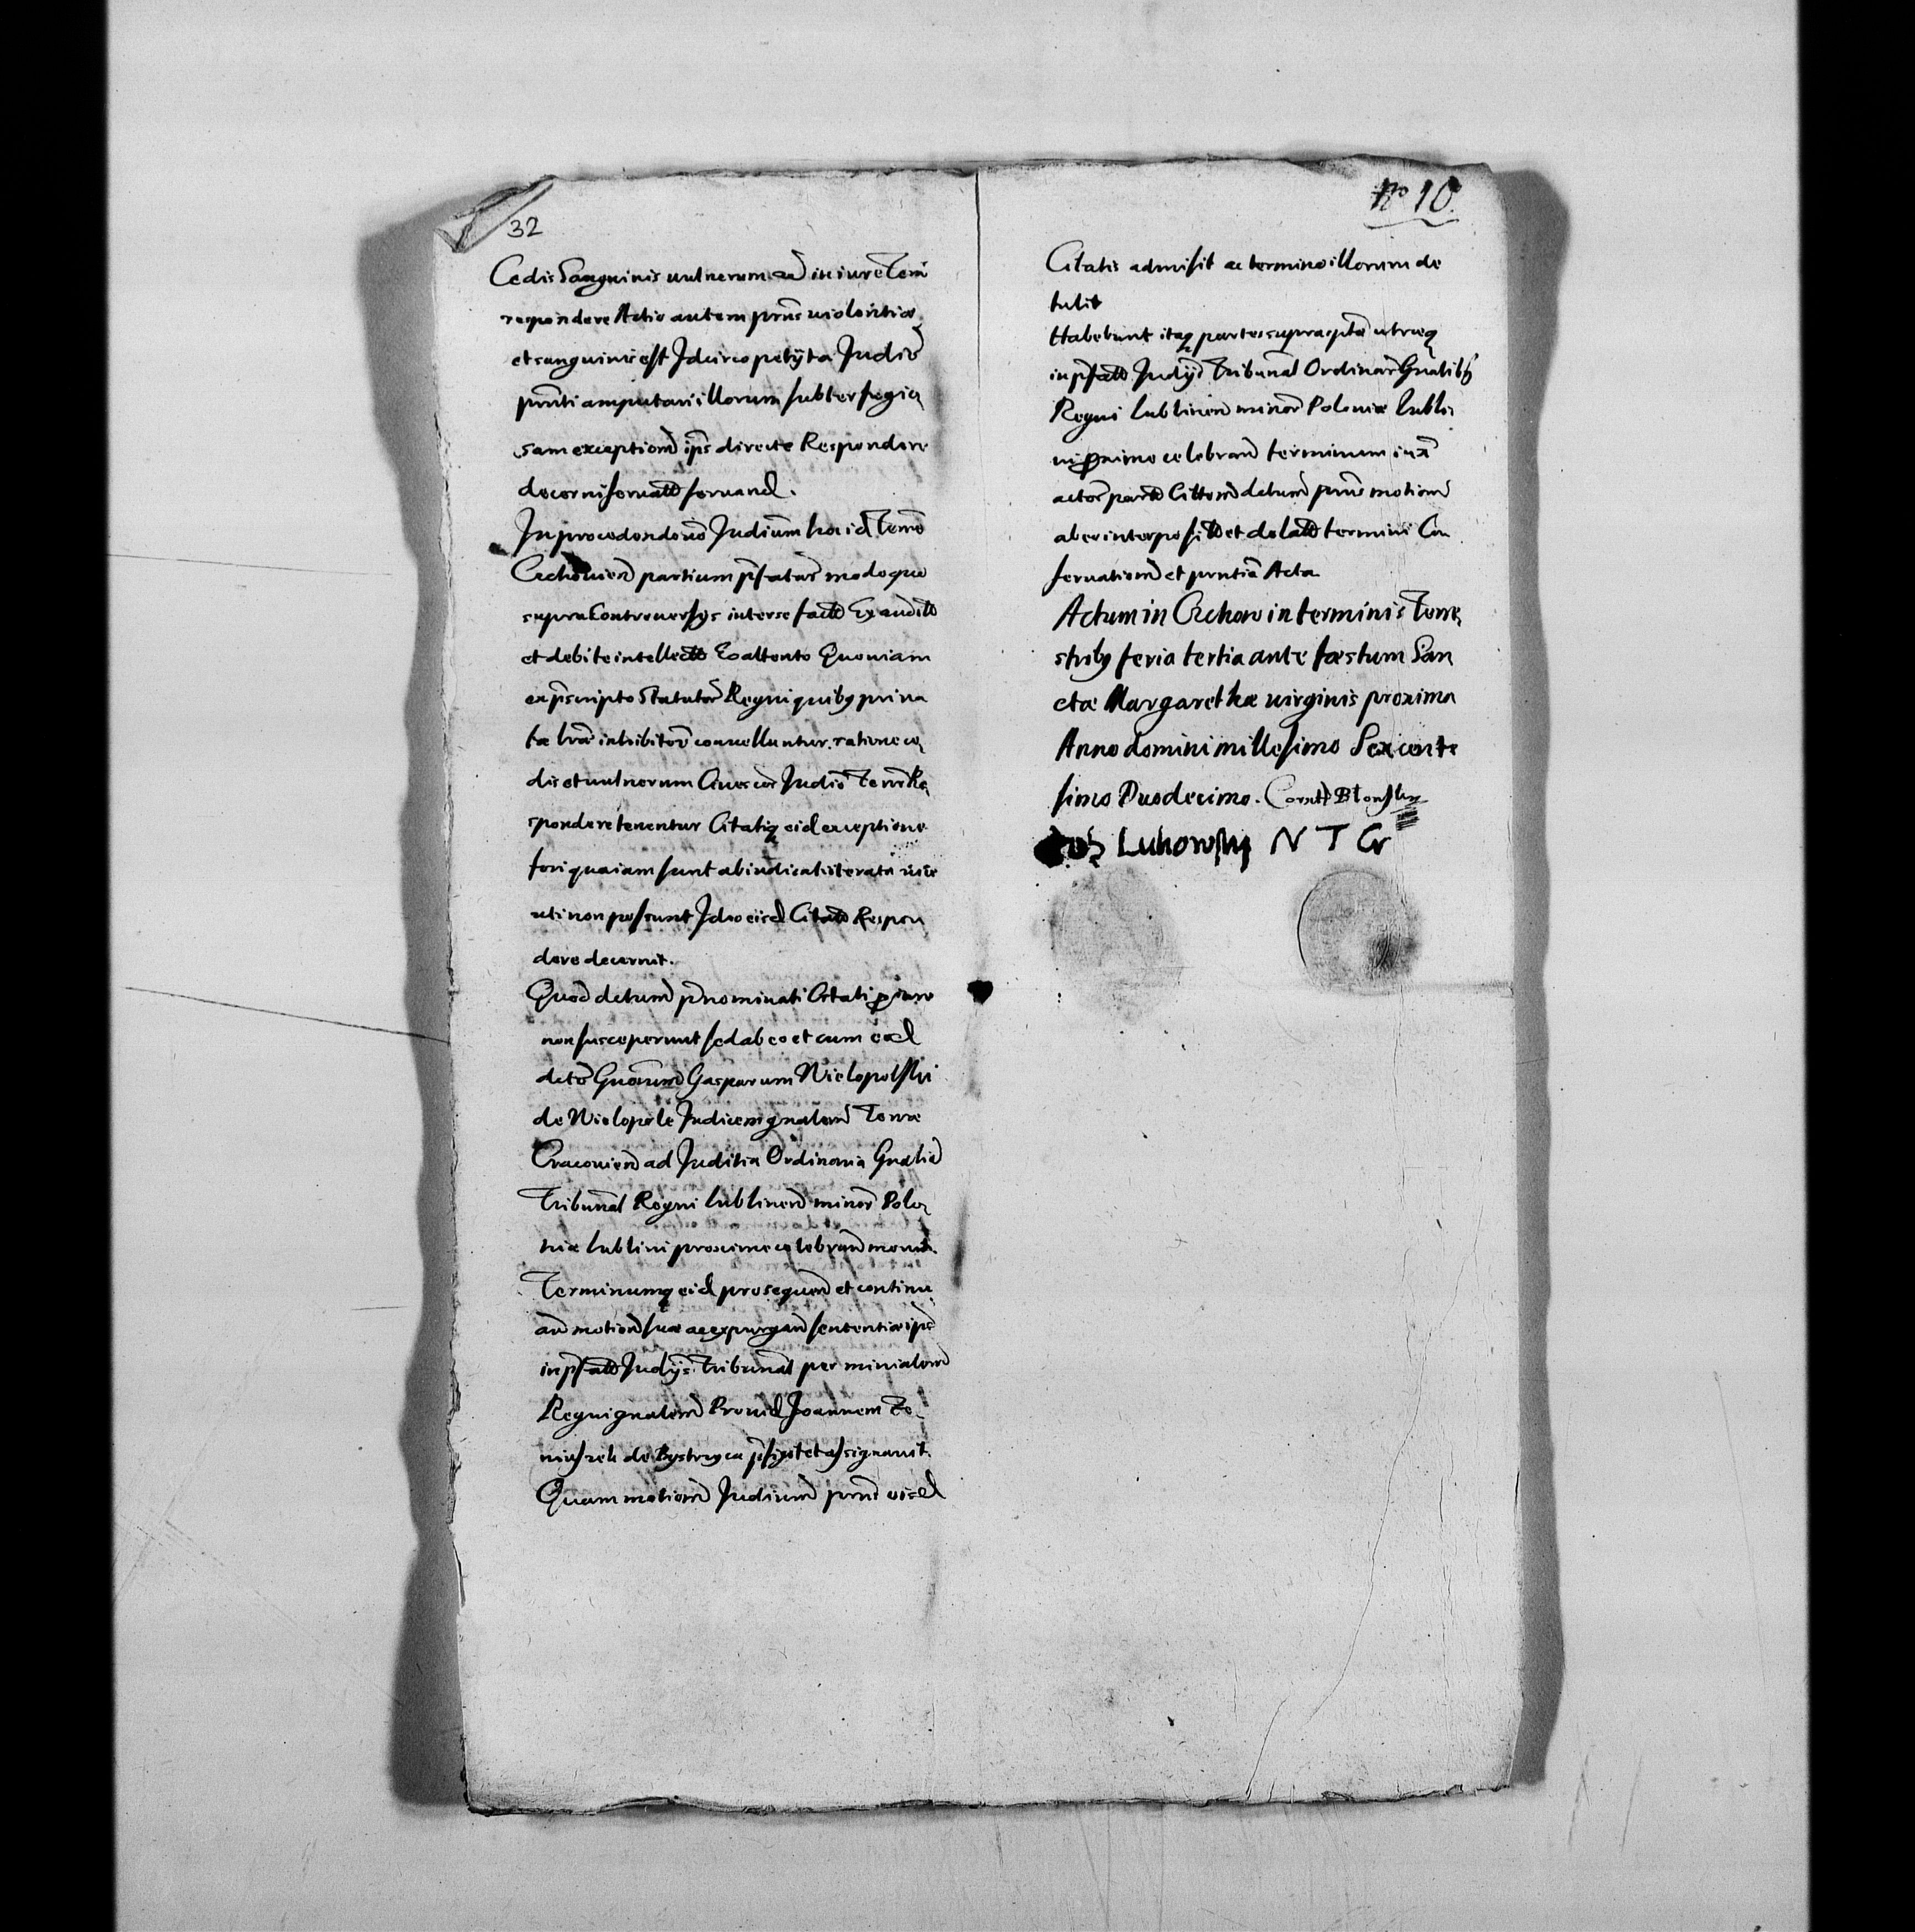 32
Cedis Sanguinis uulnerum ad in iure Terri
respondere Actio autem prñs uiolentiæ
et sanguinis est Idcirco petijt a Judic̃
prñti amputari illorum subterfugia
sam exceptionẽ ip̃s directe Respondere
decerni seruatt̃ seruand.
In procedendo uõ Judicium hoc id Terrẽ
Czchouien̄ partium p̃fatar̃ modo quo
supra Controuersijs inter se factt̃ Exauditt̃
et debite intellectt̃ Eo attento Quoniam
ex p̃scripto Statutor̃ Regni quibꝫ priua
tæ lr̃æ inhibitor̃ conuelluntur ratione cæ
dis et uulnerum Ciues cor̃ Judic̃ Terr̃ Re
spondere tenentur Citatiqꝫ eid exceptione
fori qua iam sunt abiudicati iterata uice
uti non possunt Ideo eisd Citatt̃ Respon
dere decernit.
Quod decretum p̃nominati Citati p̱ iure
non susceperunt sed ab eo et cum eod
dictor̃ Gñosum Gasparum Wielopolski
de Wielopole Judicem gnalem Terræ
Cracouien̄ ad Juditia Ordinaria Gnalia
Tribunal̃ Regni lublinen̄ minor̃ Polo
niæ lublini proxime celebran̄ mouit.
Terminumqꝫ eid prosequen̄ et continu
an̄ motion̄ suæ ac expurgan̄ sententiæ ip̃e
in p̃fatt̃ Judijs Tribunal̃ per minialem
Regni gnalem Prouid Joannem To
miszek de Bystrzyca p̃fixit et assignauit.
Quam motionẽ Judicium prñs eisd
nro 10.
Citatis admisit ac termino illorum de
tulit
Habebunt itaqꝫ partes suprascriptæ utræqꝫ
in p̃fatt̃ Judijs Tribunal̃ Ordinar̃ Gnalibꝫ
Regni lublinen̄ minor̃ Poloniæ lubli
ni p̱ximo celebran̄ terminum iuxta
actor̃ partt̃ Citt̃ decretum prñs motionẽ
ab eo interpositt̃ et delatt̃ termini Con
seruationẽ et prñtia Acta
Actum in Czchow in terminis Terre
stribꝫ feria tertia ante fæstum San
ctæ Margarethæ uirginis proxima
Anno domini millesimo Sexcente
simo Duodecimo.
Lukowsky N T Cr